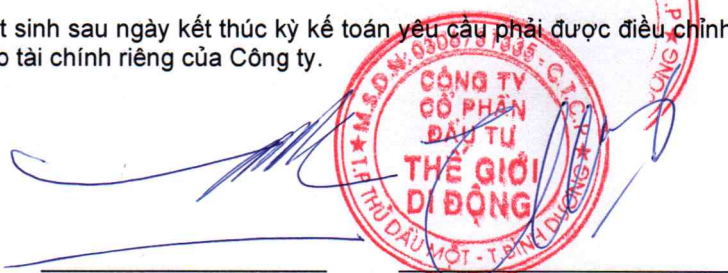 t sinh sau ngày kết thúc kỳ kế toán yêu cầu phải được điều chỉnh
o tài chính riêng của Công ty.
M.S.D.N: 0306731335 - C.T.C.P
CÔNG TY
CỔ PHẦN
ĐẦU TƯ
THẾ GIỚI
DI ĐỘNG
T.P THỦ DẦU MỘT - T.BÌNH DƯƠNG